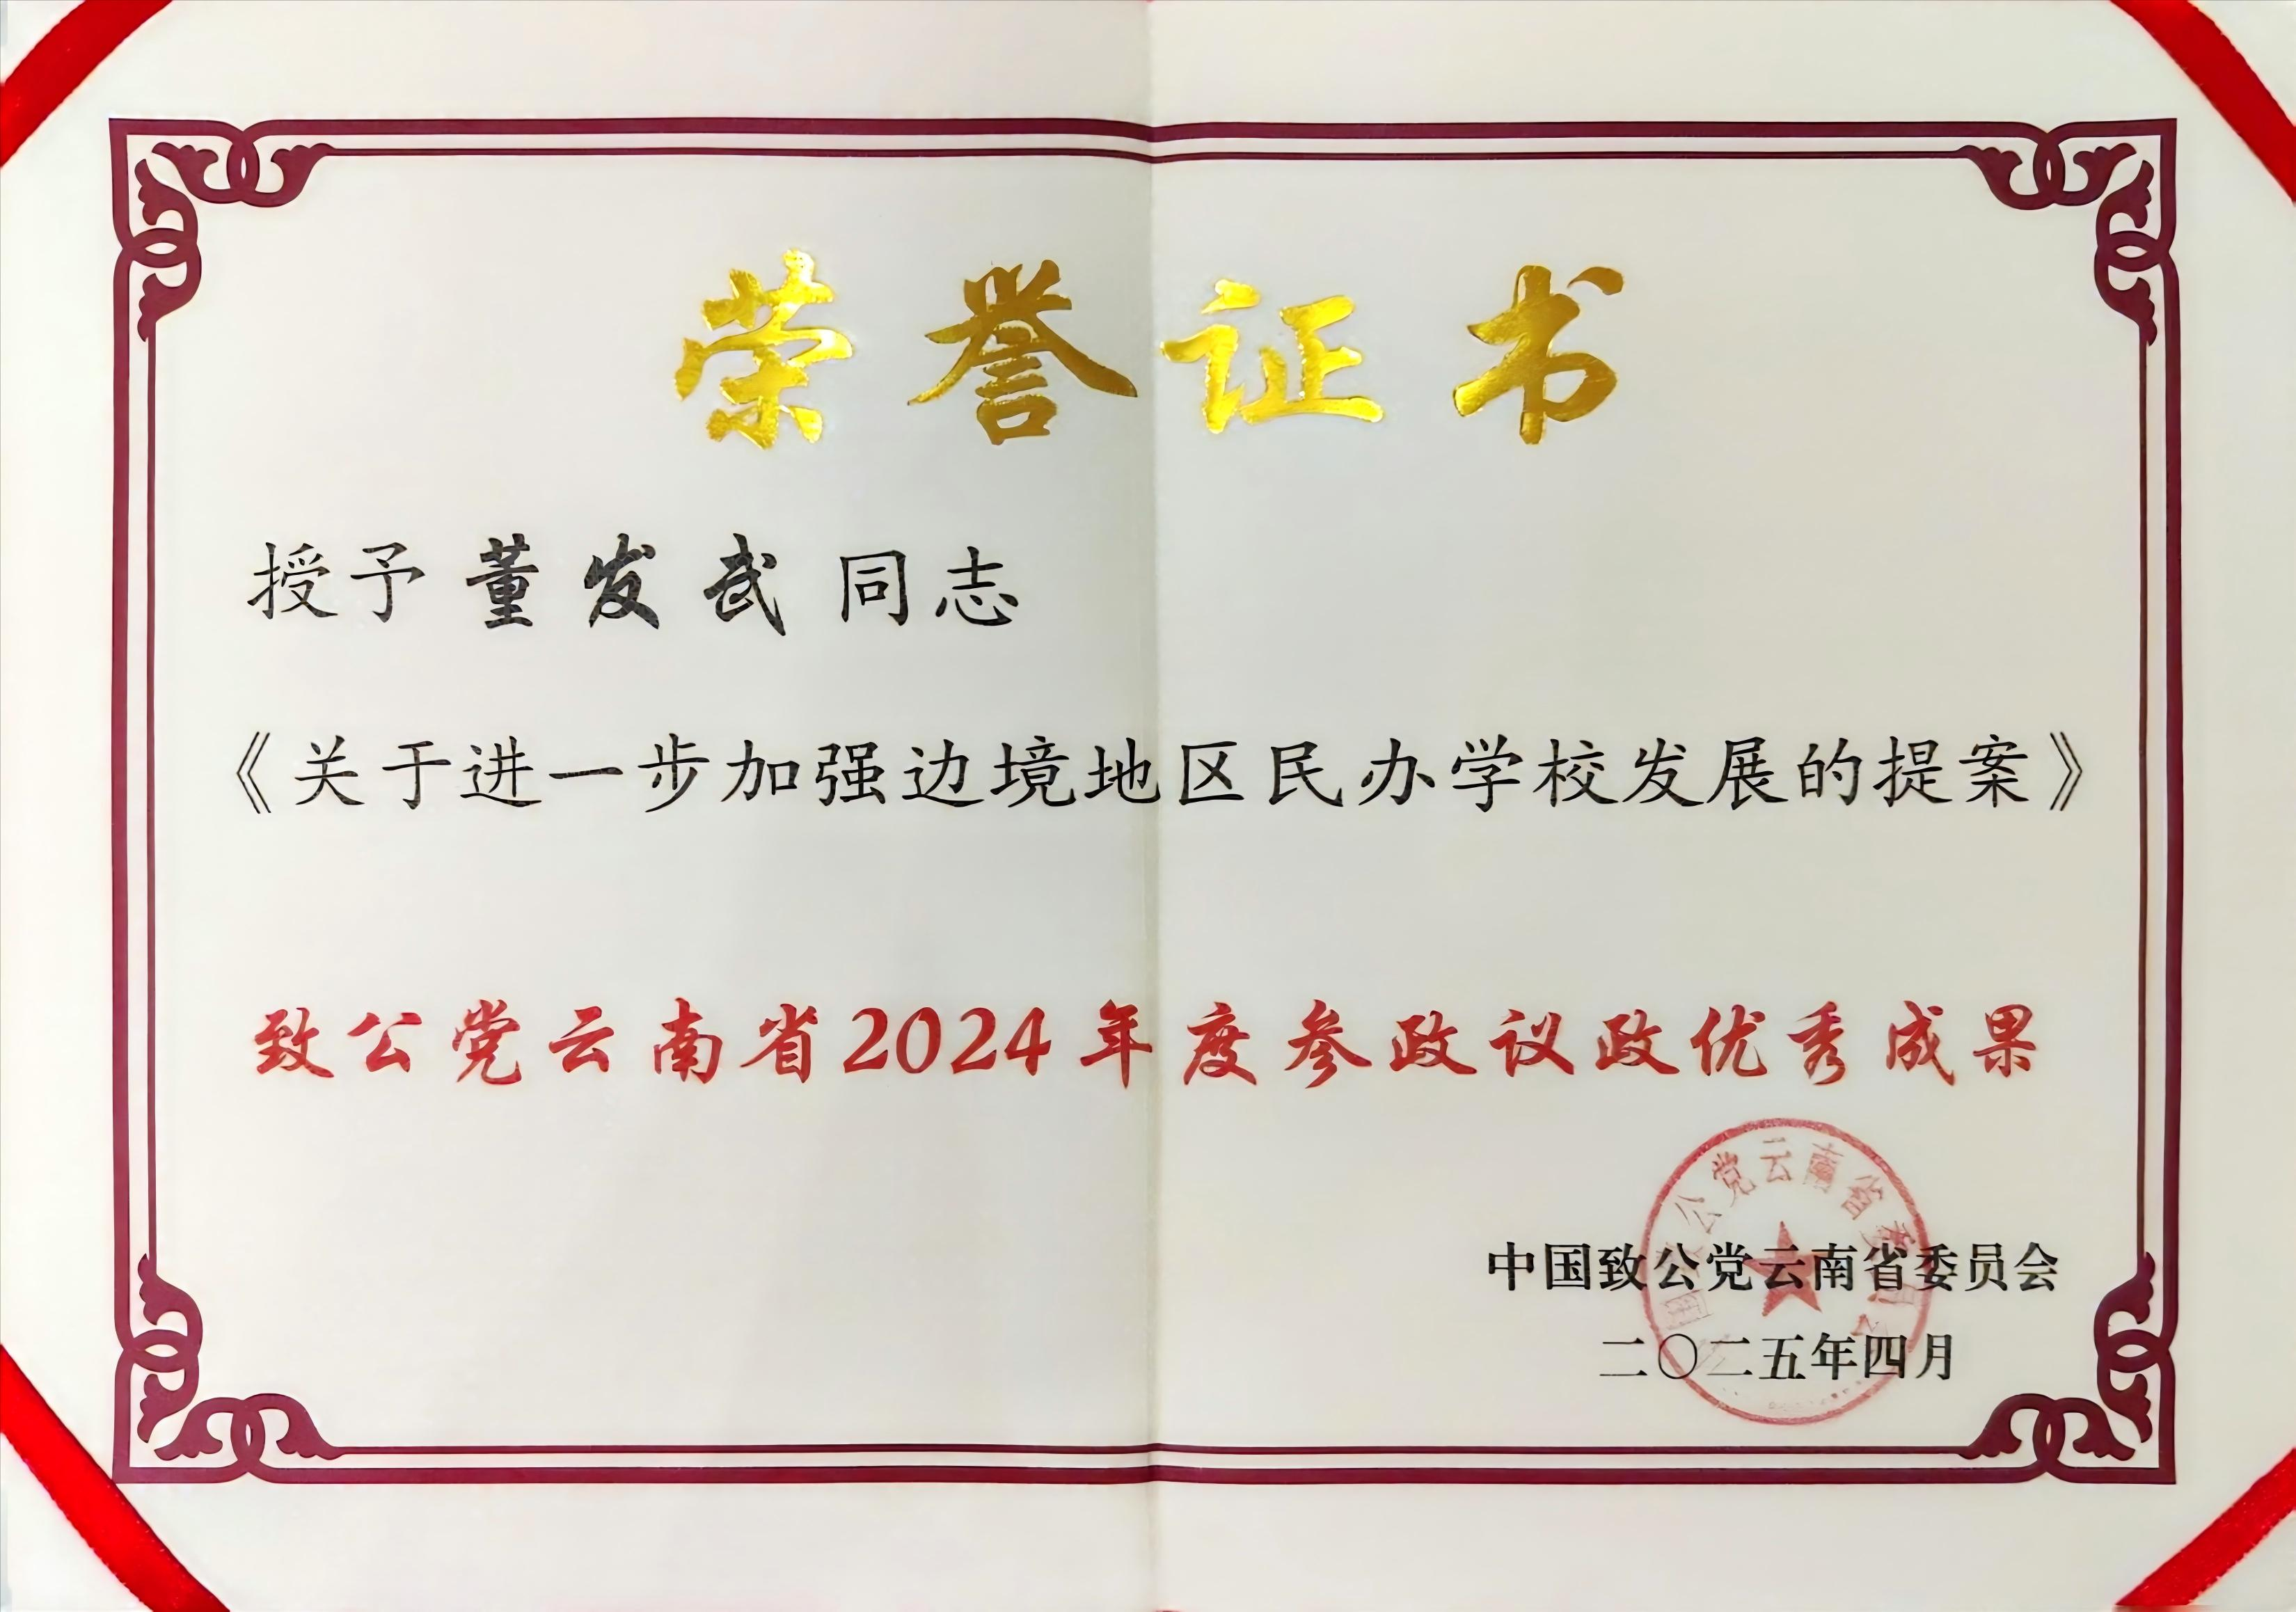 荣誉证书
授予 董发武 同志
《关于进一步加强边境地区民办学校发展的提案》
致公党云南省2024年度参政议政优秀成果
中国致公党云南省委员会
二〇二五年四月
公党云南省委